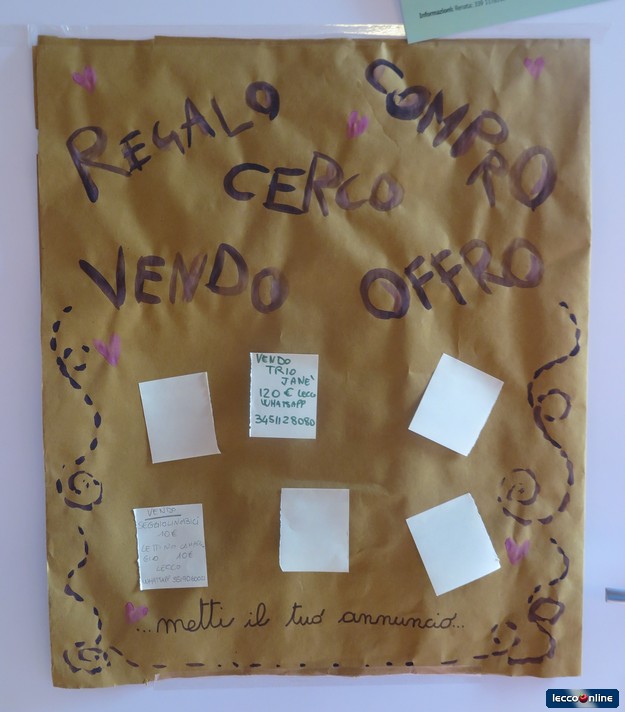 Informazioni: Renata 339
REGALO
COMPRO
CERCO
VENDO
OFFRO
VENDO
TRIO
JANE'
120 € LECCO
WHATSAPP
3451128080
VENDO
10€
10€
LECCO
WHATSAPP
...metti il tuo annuncio...
leccoonline